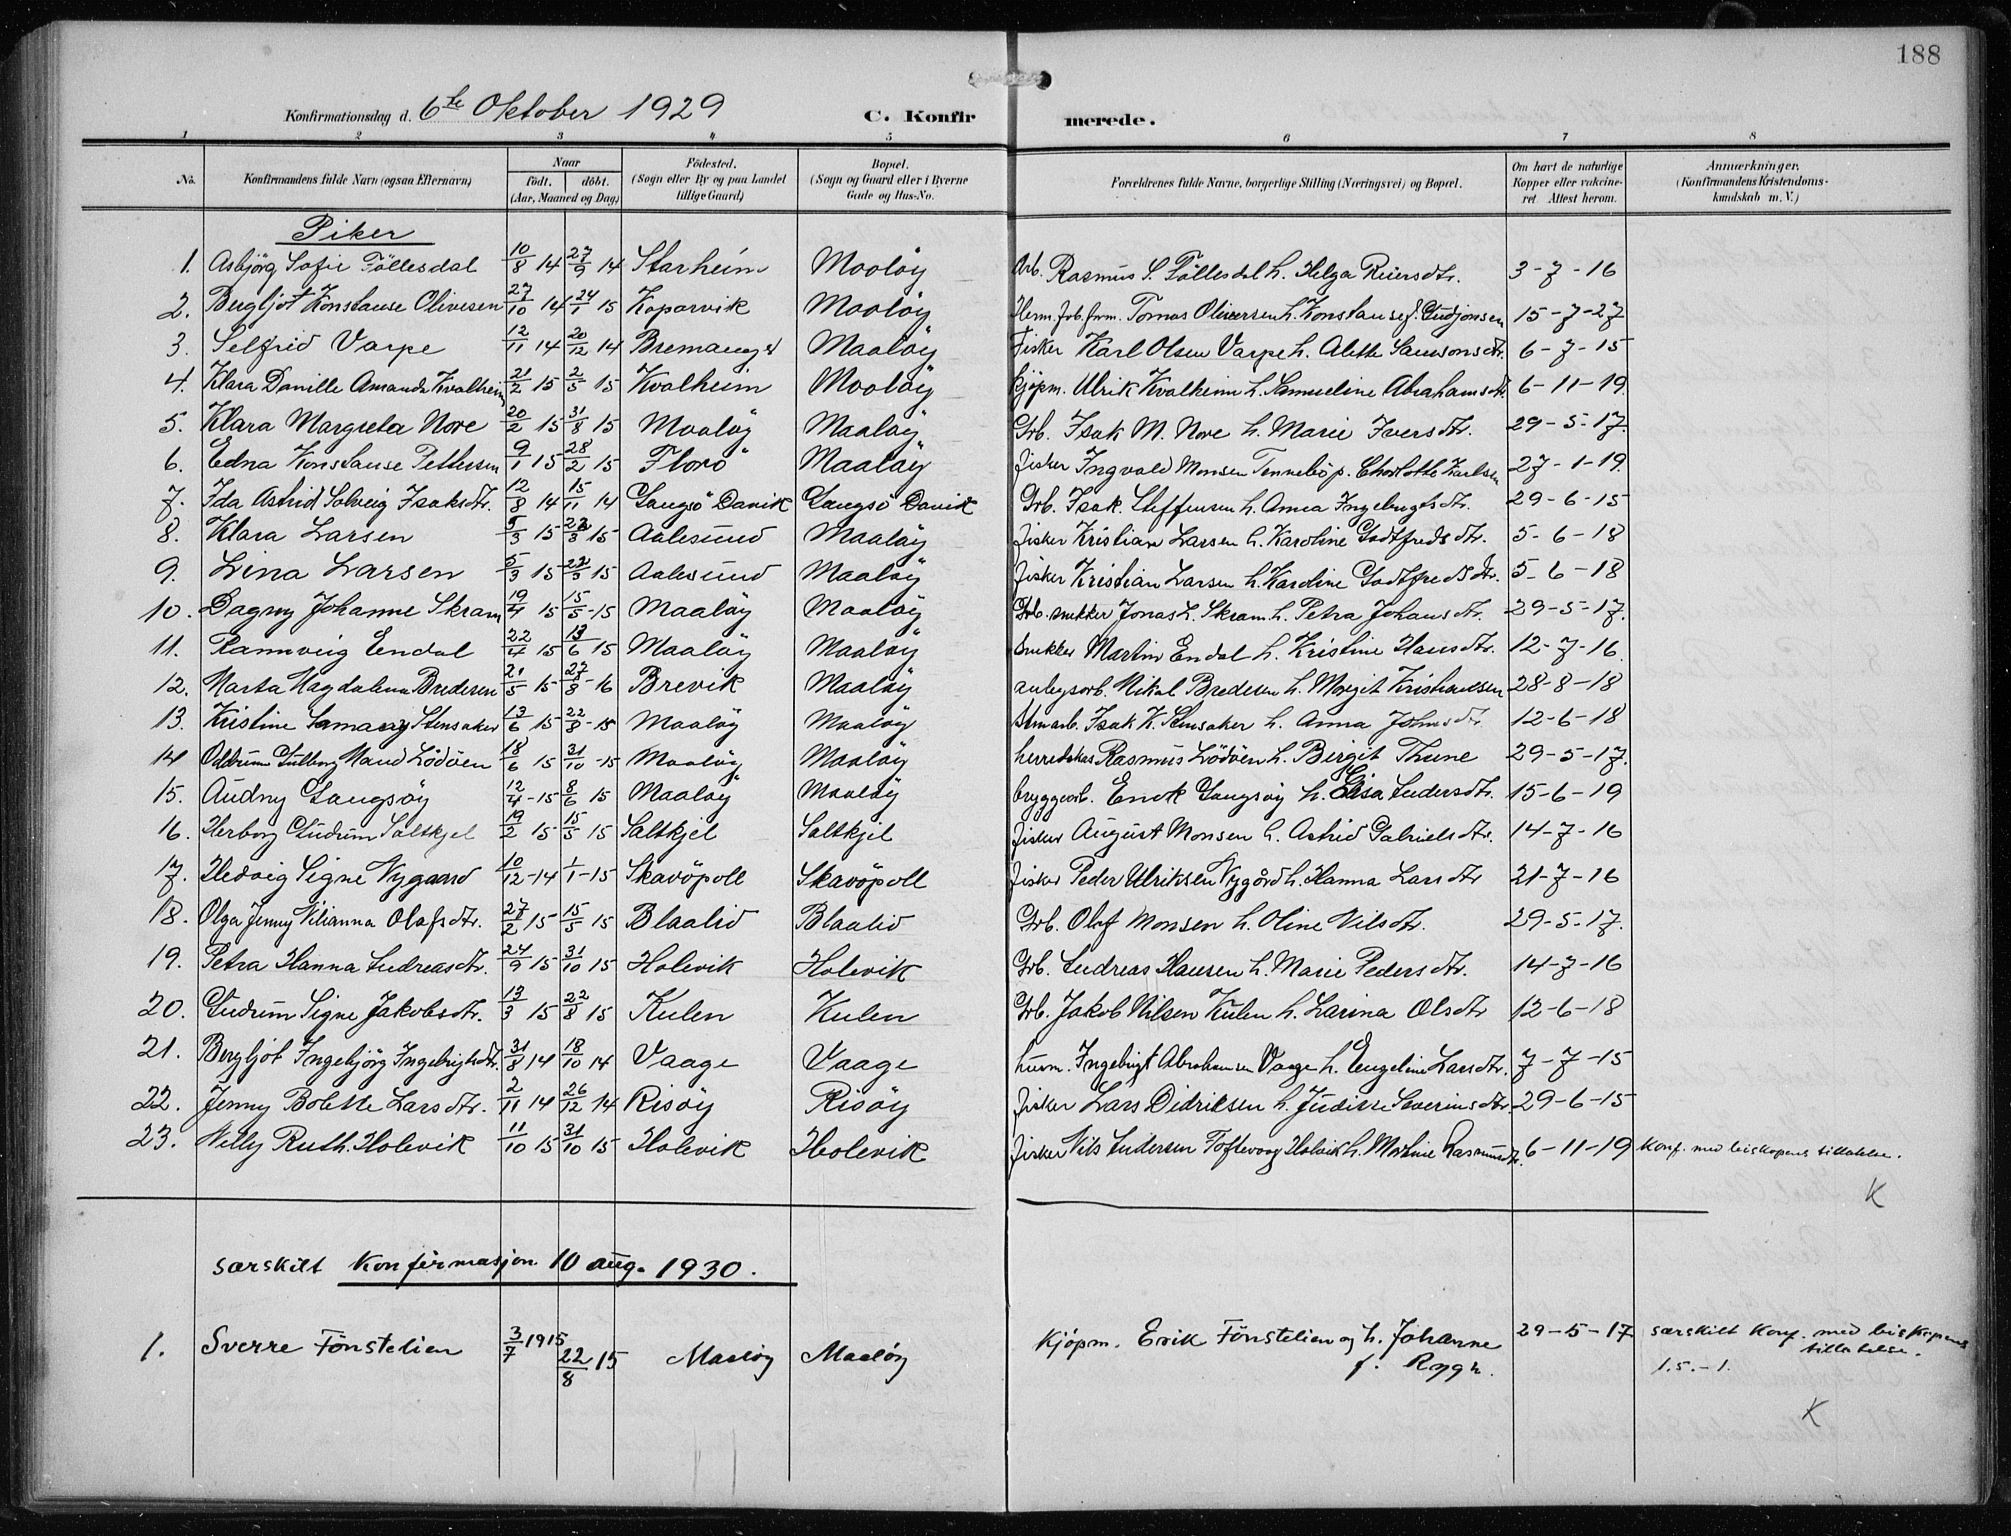 188
Konfirmationsdag d. 6te Oktober 1929 C. Konfirmerede.
1 2 3 4 5 6 7 8
No. Konfirmandens fulde Navn (ogsaa Efternavn) Naar födt. döbt. (Aar, Maaned og Dag) Födested. (Sogn eller By og paa Landet tillige Gaard) Bopæl. (Sogn og Gaard eller i Byerne Gade og Hus-No. Forældrenes fulde Navne, borgerlige Stilling (Næringsvei) og Bopæl. Om havt de naturlige Kopper eller vakcineret. Attest herom. Anmærkninger, (Konfirmandens Kristendomskundskab m. V.)
Piker
1. Asbjörg SofieFöllesdal 10/8 14 27/9 14 Starheim Maalöy Arb. Rasmus S. Föllesdal h. Helga Reiersdtr. 3-7-16
2. Bergljot Konstanse Oliversen 27/10 14 24/1 15 Kopervik Maalöy Tomas Oliversen h. Konstanse f. Gudjonsen 15-7-27
3. Selfrid Varpe 12/11 14 20/12 14 Bremanger Maalöy Fisker Karl Olsen Varpe h. Alette Samsonsdtr. 6-7-15
4. Klara Danille Amanda Kvalheim 21/2 15 2/5 15 Kvalheim Maalöy Kjöpm. Ulrik Kvalheim h. Samueline Abrahamsdtr. 6-11-19.
5. Klara Margreta Nore 20/2 15 31/8 15 Maalöy Maalöy Grb. Isak M. Nore h. Marie Iversdtr. 29-5-17.
6. Edna Konstanse Pettersen 9/1 15 28/2 15 Florö Maalöy fisker Ingvald Monsen Tennebö p. Charlotte Karlsen 27-1-19.
7. Ida Astrid Solveig Isaksdtr. 12/8 14 15/11 14 Langsö Davik Langsö Davik Grb. Isak Steffensen h. Anna Ingebrigtsdtr. 29-6-15
8. Klara Larsen 5/3 15 22/3 15 Aalesund Maalöy fisker Kristian Larsen h. Karoline Godtfredsdtr. 5-6-18
9. Lina Larsen 5/3 15 22/3 15 Aalesund Maalöy fisker Kristian Larsen h. Karoline Godtfredsdtr. 5-6-18
10. Dagny Johanne Skram 19/4 15 15/5-15 Maalöy Maalöy Grb. snekker Jonas L. Skram h. Petra Johansdtr. 29-5-17.
11. Rannveig Endal 22/4 15 13/6 15 Maalöy Maalöy Snekker Martin Endal h. Kristine Hansdtr. 12-7-16.
12. Marta Magdalena Bredesen 21/5 15 27/8-16 Brevik Maalöy anlegsarb. Nikal Bredesen h. Margit Kristiansen 28-8-18
13. Kristine Stensaker 13/6 15 22/8-15 Maalöy Maalöy Isak K. Stensaker h. Anna Johnsdtr. 12-6-18
14 Oddrun Gulborg Maud Lödöen 18/6 15 31/10-15 Maalöy Maalöy herredskas Rasmus Lödöen h. Birgit Thune 29-5-17.
15. Audny Langsöy 12/4-15 8/6 15 Maalöy Maalöy bryggearb. Enok Langsöy h. Elisa Andersdtr. 15-6-19
16. Herborg Gudrun Saltskjel 19/2 15 15/5 15 Saltkjel Saltkjel fisker August Monsen h. Astrid Gabrielsdtr. 14-7-16
17. Hedvig Signe Nygaard 10/12-14 1/1-15 Skavöpoll Skavöpoll fisker Peder Ulriksen Nygård h. Hanna Larsdtr 21-7-16
18. Olga Jenny Nilianna Olafsdtr. 27/2 15 15/5 15 Blaalid Blaalid Grb. Olaf Monsen h. Oline Nilsdtr. 29-5-17.
19. Petra Hanna Andreasdtr. 24/9 15 31/10 15 Holevik Holevik Grb. Andreas Hansen h. Marie Pedersdtr. 14-7-16
20. Gudrun Signe Jakobsdtr. 13/3 15 22/8 15 Kulen Kulen Grb. Jakob Nilsen Kulen h. Larina Olsdtr 12-6-18
21. Bergljot Ingebjörg Ingebrigtsdtr. 31/8 14 18/10 14 Vaage Vaage husm. Ingebrigt Abrahamsen Vaage h. Engeline Larsdtr. 7-7-15
22. Jenny Bolette Larsdtr. 2/11 14 26/12 14 Risöy Risöy fisker Lars Didriksen h. Judisse Severinsdtr. 29-6-15
23. Nelly Ruth Holevik 11/10 15 31/10 15 Holevik Holevik fisker Nils Andersen Toftevaag Holevik h. Martine Rasmusdtr. 6-11-19 Konf. med biskopens tillatelse.
K
særskilt Konfirmasjon 10 aug. 1930.
1. Sverre Fönstelien 3/7 1915 22/8 15 Maalöy Maalöy Kjöpm. Erik Fönstelien og h. Johanne 29-5-17 særskilt Konf. med biskopens
f. Rygg. tillatelse.
1.5.-1.
K